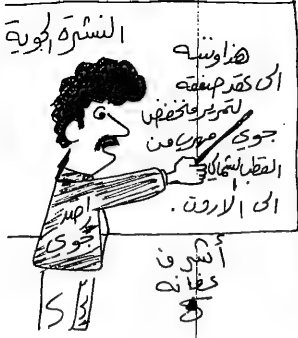 النشرة الجوية
هذا وتتنبه
الى عقد صفقة
لتمرير منخفض
جوي مهرب من
القطب الشمالي
الى الاردن.
راصد
جوي
أشرف
عفانه